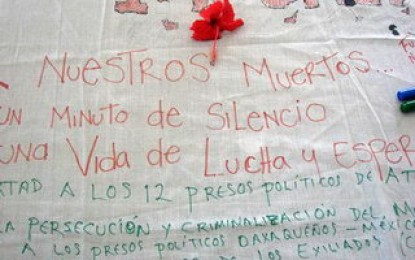 A NUESTROS MUERTOS...
UN MINUTO DE SILENCIO
UNA VIDA DE LUCHA Y ESPER
RTAD A LOS 12 PRESOS POLÍTICOS DE AT
LA PERSECUCIÓN Y CRIMINALIZACIÓN DEL M
A LOS PRESOS POLÍTICOS OAXAQUEÑOS - MÉXICO
DE LOS EXILIADOS